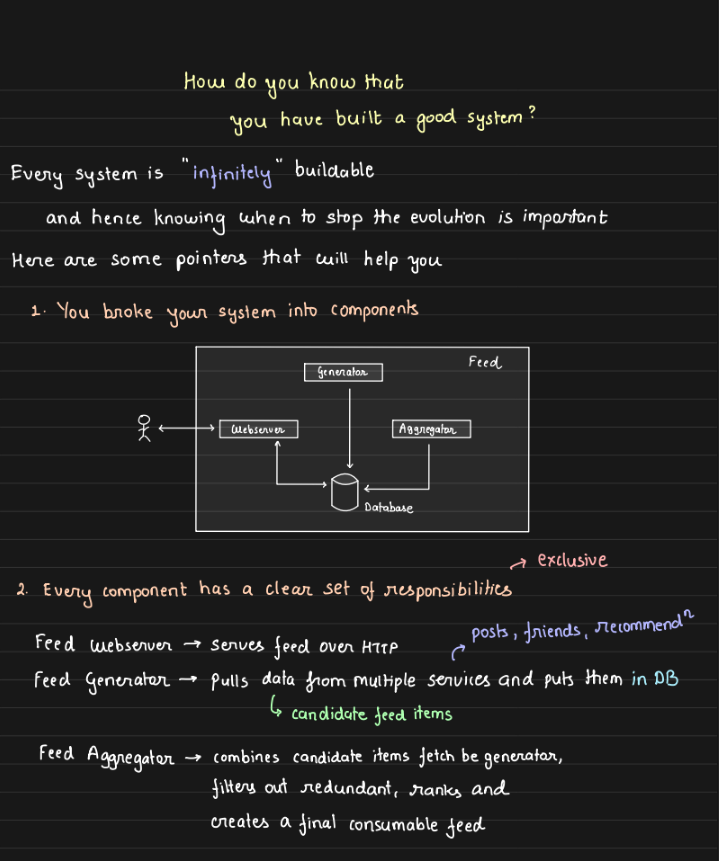 How do you know that
you have built a good system?
Every system is "infinitely" buildable
and hence knowing when to stop the evolution is important
Here are some pointers that will help you
1. You broke your system into components
Feed
Generator
Webserver
Aggregator
Database
exclusive
2. Every component has a clear set of responsibilities
Feed Webserver → serves feed over HTTP
posts, friends, recommendⁿ
Feed Generator → Pulls data from multiple services and puts them in DB
candidate feed items
Feed Aggregator → combines candidate items fetch be generator,
filters out redundant, ranks and
creates a final consumable feed